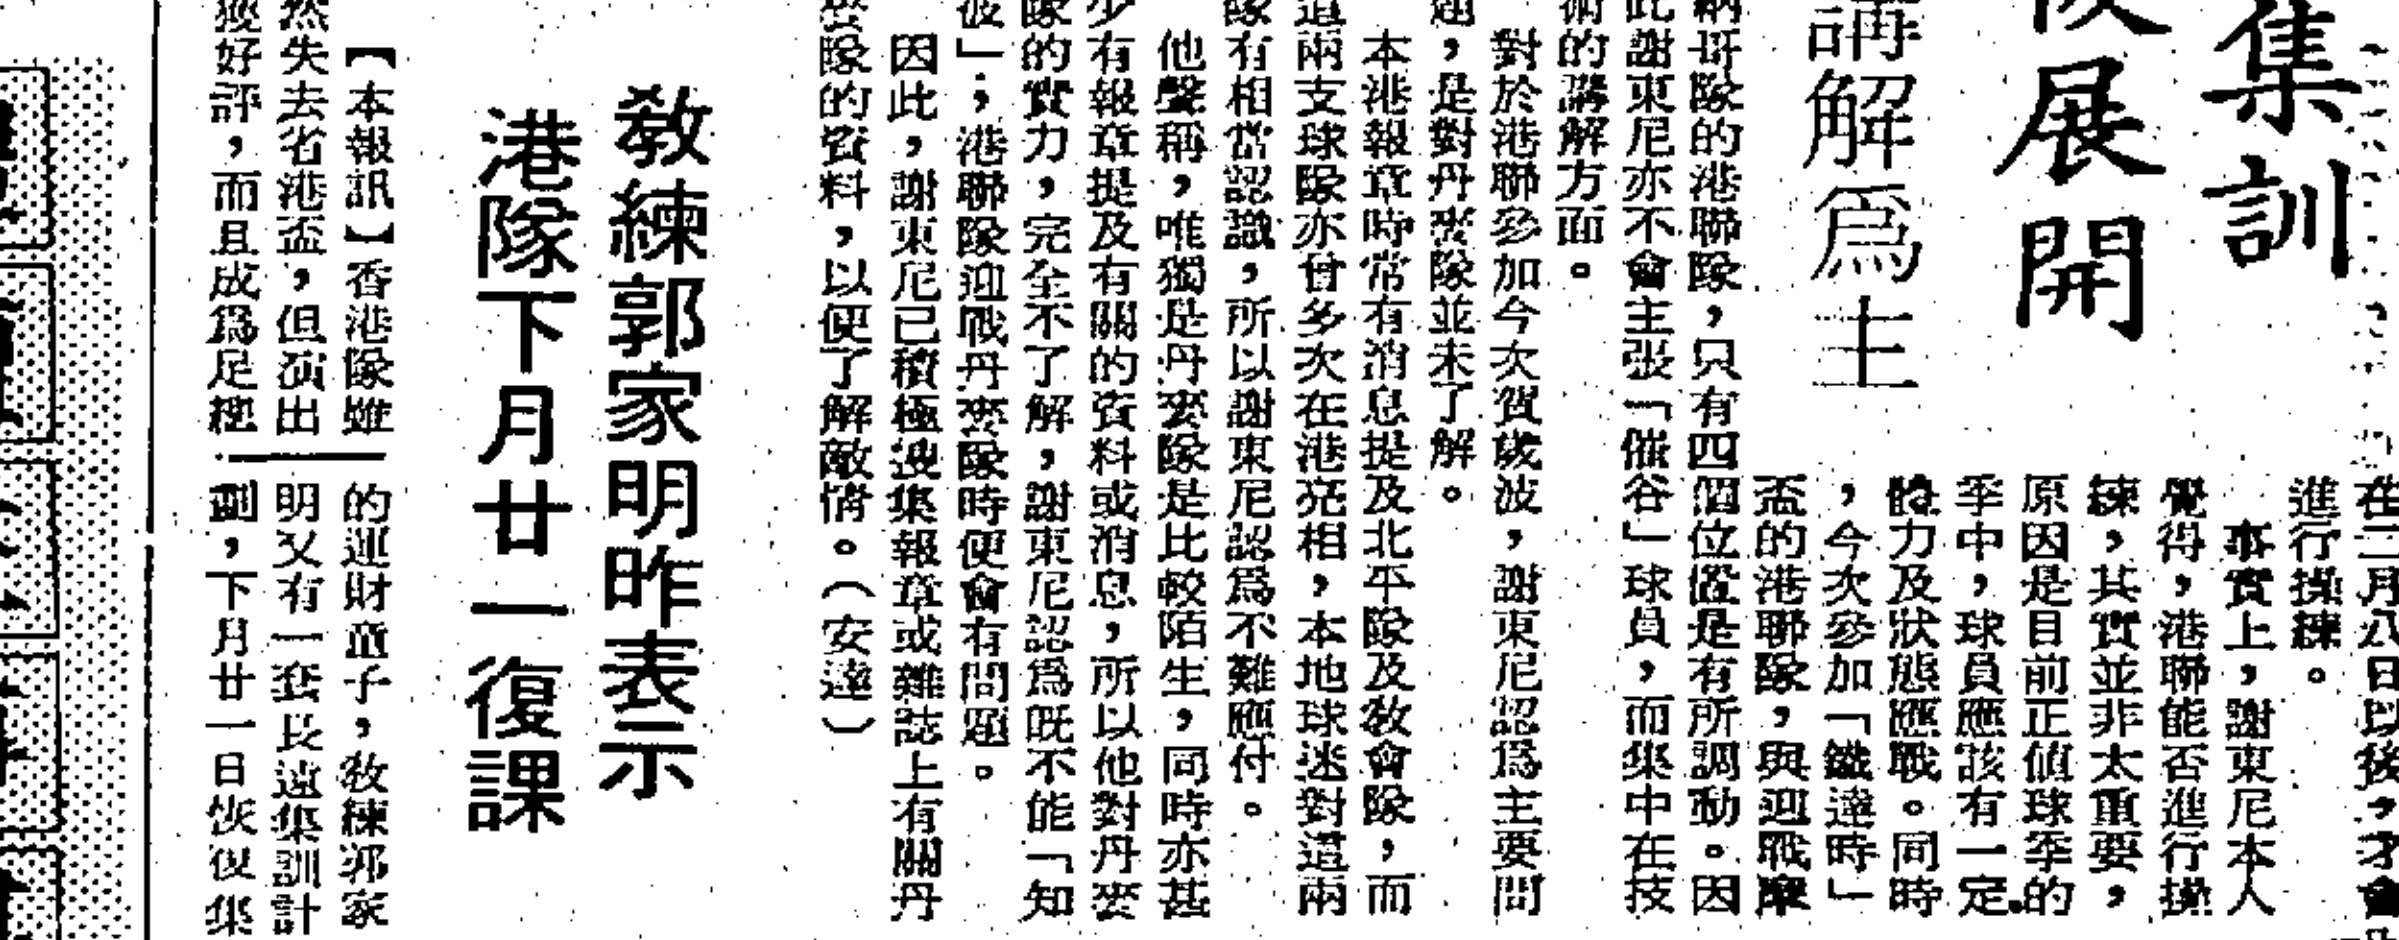 集訓
展開
講解為主
在二月八日以後，才會
進行操練。
事實上，謝東尼本人
覺得，港聯能否進行操
練，其實並非太重要，
原因是目前正值球季的
季中，球員應該有一定
體力及狀態應戰。同時
，今次參加「鐵達時」
盃的港聯隊，與迎戰摩
納哥隊的港聯隊，只有四個位置是有所調動。因
此謝東尼亦不會主張「催谷」球員，而集中在技
術的講解方面。
對於港聯參加今次賀歲波，謝東尼認為主要問
題，是對丹麥隊並未了解。
本港報章時常有消息提及北平隊及教會隊，而
這兩支球隊亦曾多次在港亮相，本地球迷對這兩
隊有相當認識，所以謝東尼認為不難應付。
他聲稱，唯獨是丹麥隊是比較陌生，同時亦甚
少有報章提及有關的資料或消息，所以他對丹麥
隊的實力，完全不了解，謝東尼認為既不能「知
彼」；港聯隊迎戰丹麥隊時便會有問題。
因此，謝東尼已積極搜集報章或雜誌上有關丹
麥隊的資料，以便了解敵情。（安達）
教練郭家明昨表示
港隊下月廿一復課
【本報訊】香港隊雖
然失去省港盃，但演出
獲好評，而且成為足總
的運財童子，教練郭家
明又有一套長遠集訓計
劃，下月廿一日恢復集